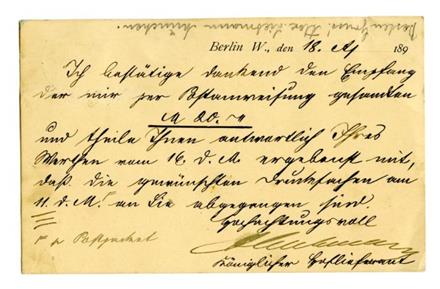 Berlin W., den 18. 189
Ich bestätige dankend den Empfang
der mir per Postanweisung gesandten
M 20.
und theile Ihnen antwortlich Ihres
Werthen vom 16. d. M. ergebenst mit,
daß die gewünschten Drucksachen am
11. d. M. an Sie abgegangen sind.
Hochachtungsvoll
Königlicher Hoflieferant